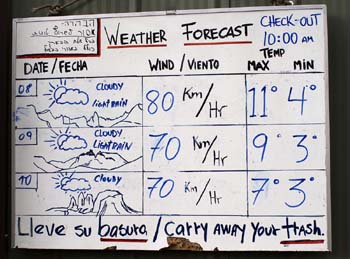 WEATHER FORECAST
CHECK-OUT
10:00 AM
DATE/FECHA WIND / VIENTO TEMP MAX MIN
08 CLOUDY LIGHTRAIN 80 Km/Hr 11° 4°
09 CLOUDY LIGHTRAIN 70 Km/Hr 9° 3°
10 CLOUDY 70 Km/Hr 7° 3°
Lleve su basura / CARRY AWAY YOUR TRASH.